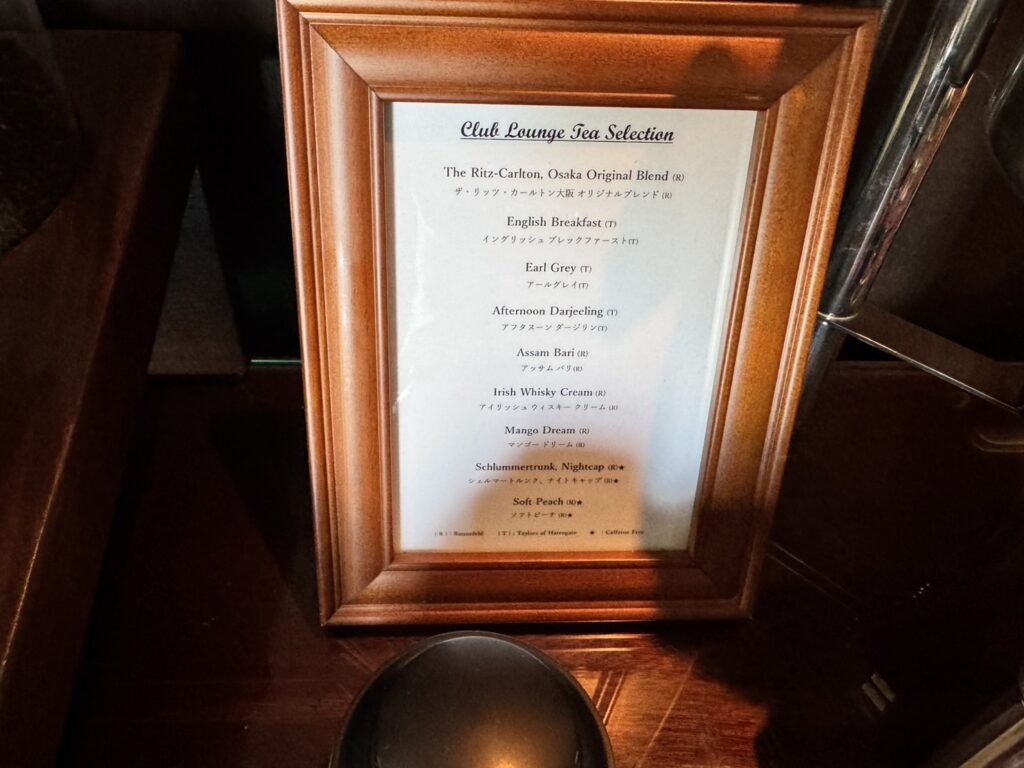 Club Lounge Tea Selection
The Ritz-Carlton, Osaka Original Blend (R)
ザ・リッツ・カールトン大阪 オリジナルブレンド (R)
English Breakfast (T)
イングリッシュ ブレックファースト(T)
Earl Grey (T)
アールグレイ(T)
Afternoon Darjeeling (T)
アフタヌーン ダージリン(T)
Assam Bari (R)
アッサム バリ(R)
Irish Whisky Cream (R)
アイリッシュ ウィスキー クリーム (R)
Mango Dream (R)
マンゴー ドリーム (R)
Schlummertrunk, Nightcap (R)★
シェルマートルンク、ナイトキャップ (R)★
Soft Peach (R)★
ソフトピーチ (R)★
( R ) : Ronnefeld ( T ) : Taylors of Harrogate ★ : Caffeine Free